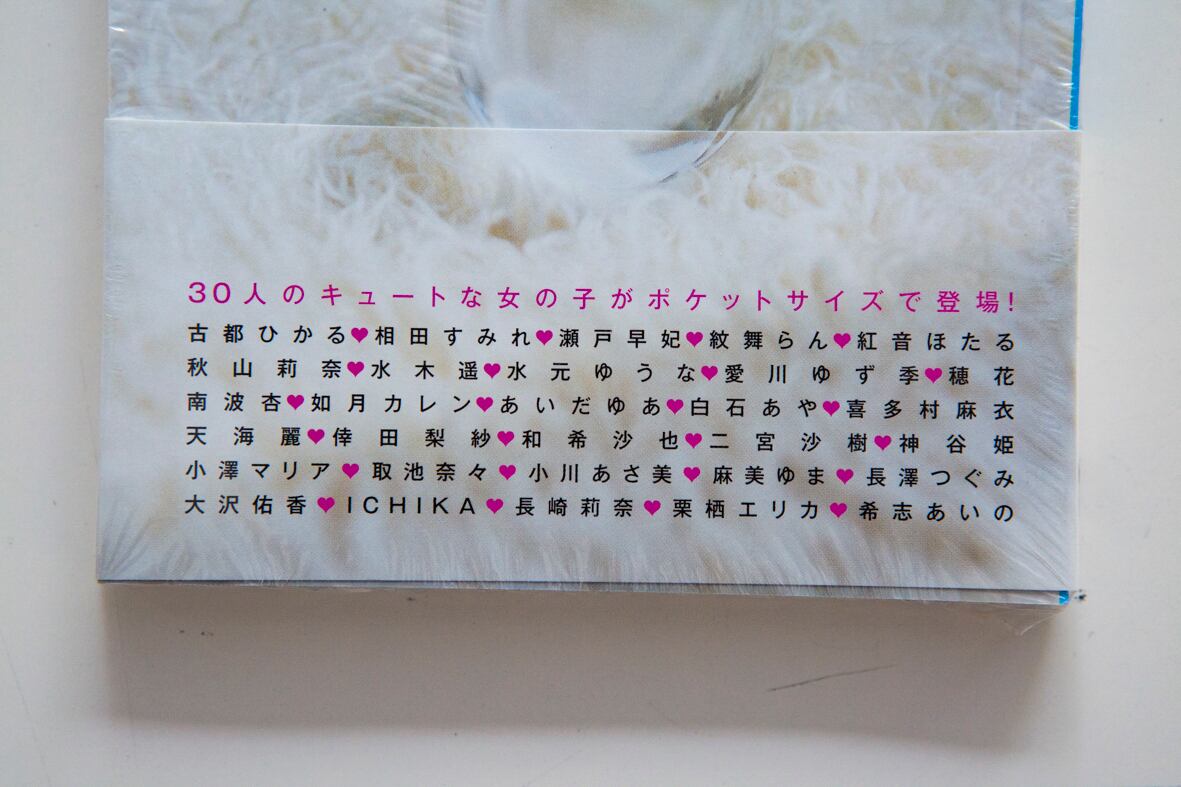 30人のキュートな女の子がポケットサイズで登場!
古都ひかる♥相田すみれ♥瀬戸早妃♥紋舞らん♥紅音ほたる
秋山莉奈♥水木遥♥水元ゆうな♥愛川ゆず季♥穂花
南波杏♥如月カレン♥あいだゆあ♥白石あや♥喜多村麻衣
天海麗♥倖田梨紗♥和希沙也♥二宮沙樹♥神谷姫
小澤マリア♥取池奈々♥小川あさ美♥麻美ゆま♥長澤つぐみ
大沢佑香♥ICHIKA♥長崎莉奈♥栗栖エリカ♥希志あいの